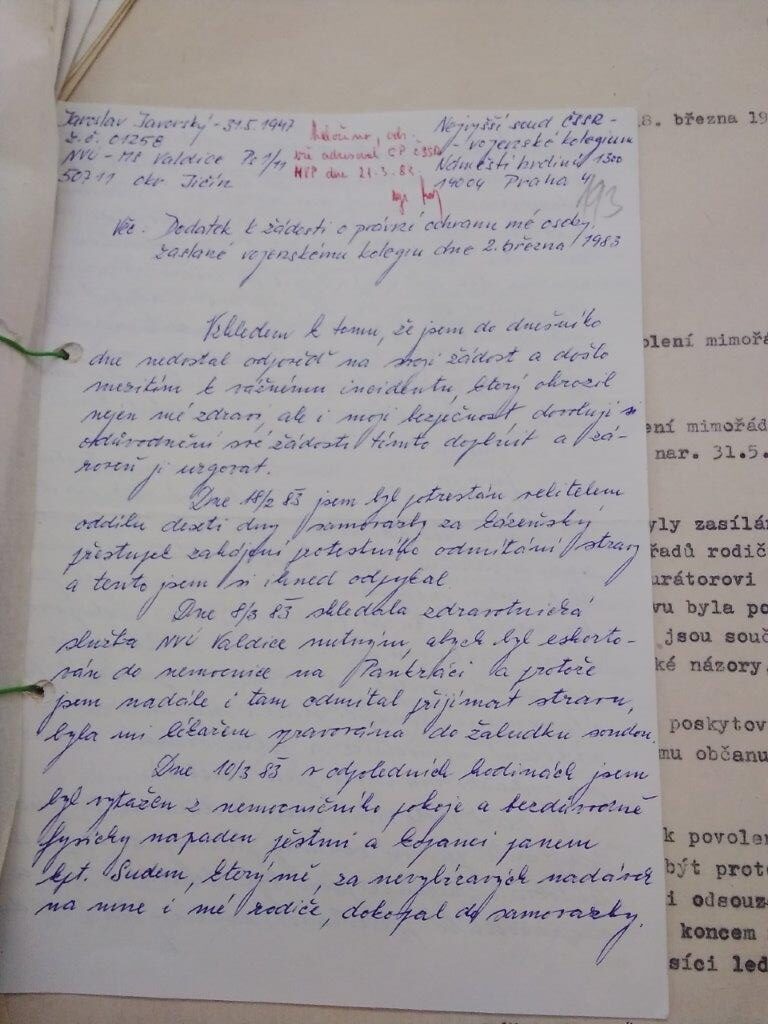 Jaroslav Javorský - 31.5.1947
Z.č. 01258
NVÚ - MS Valdice Ps 1/11
507 11 okr Jičín
dne 21-3.83.
Nejvyšší soud ČSSR -
- vojenské kolegium
Náměstí hrdinů 1300
140 04 Praha 4
193
Věc: Dodatek k žádosti o právní ochranu mé osoby,
zaslané vojenskému kolegiu dne 2. března 1983
Vzhledem k tomu, že jsem do dnešního
dne nedostal odpověď na moji žádost a došlo
mezitím k vážnému incidentu, který ohrozil
nejen mé zdraví, ale i moji bezpečnost dovoluji si
odůvodnění své žádosti tímto doplnit a zá-
roveň ji urgovat.
Dne 18/2 83 jsem byl potrestán velitelem
oddílu deseti dny samovazby za kázeňský
přestupek zahájení protestního odmítání stravy
a tento jsem si ihned odpykal.
Dne 8/3 83 shledala zdravotnická
služba NVÚ Valdice nutným, abych byl eskorto-
ván do nemocnice na Pankráci a protože
jsem nadále i tam odmítal přijímat stravu,
byla mi lékařem vpravována do žaludku sondou.
Dne 10/3 83 v odpoledních hodinách jsem
byl vytažen z nemocničního pokoje a bezdůvodně
fysicky napaden pěstmi a kopanci panem
kpt. Sudem, který mě, za nevybíravých nadávek
na mne i mé rodiče, dokopal do samovazby.
8. března 19
olení mimořá
ení mimořád
nar. 31.5.
yly zasílán
řadů rodič
urátorovi
vu byla po
jsou souč
ké názory,
poskytov
mu občanu
k povolen
být prote
i odsouz
koncem
síci led